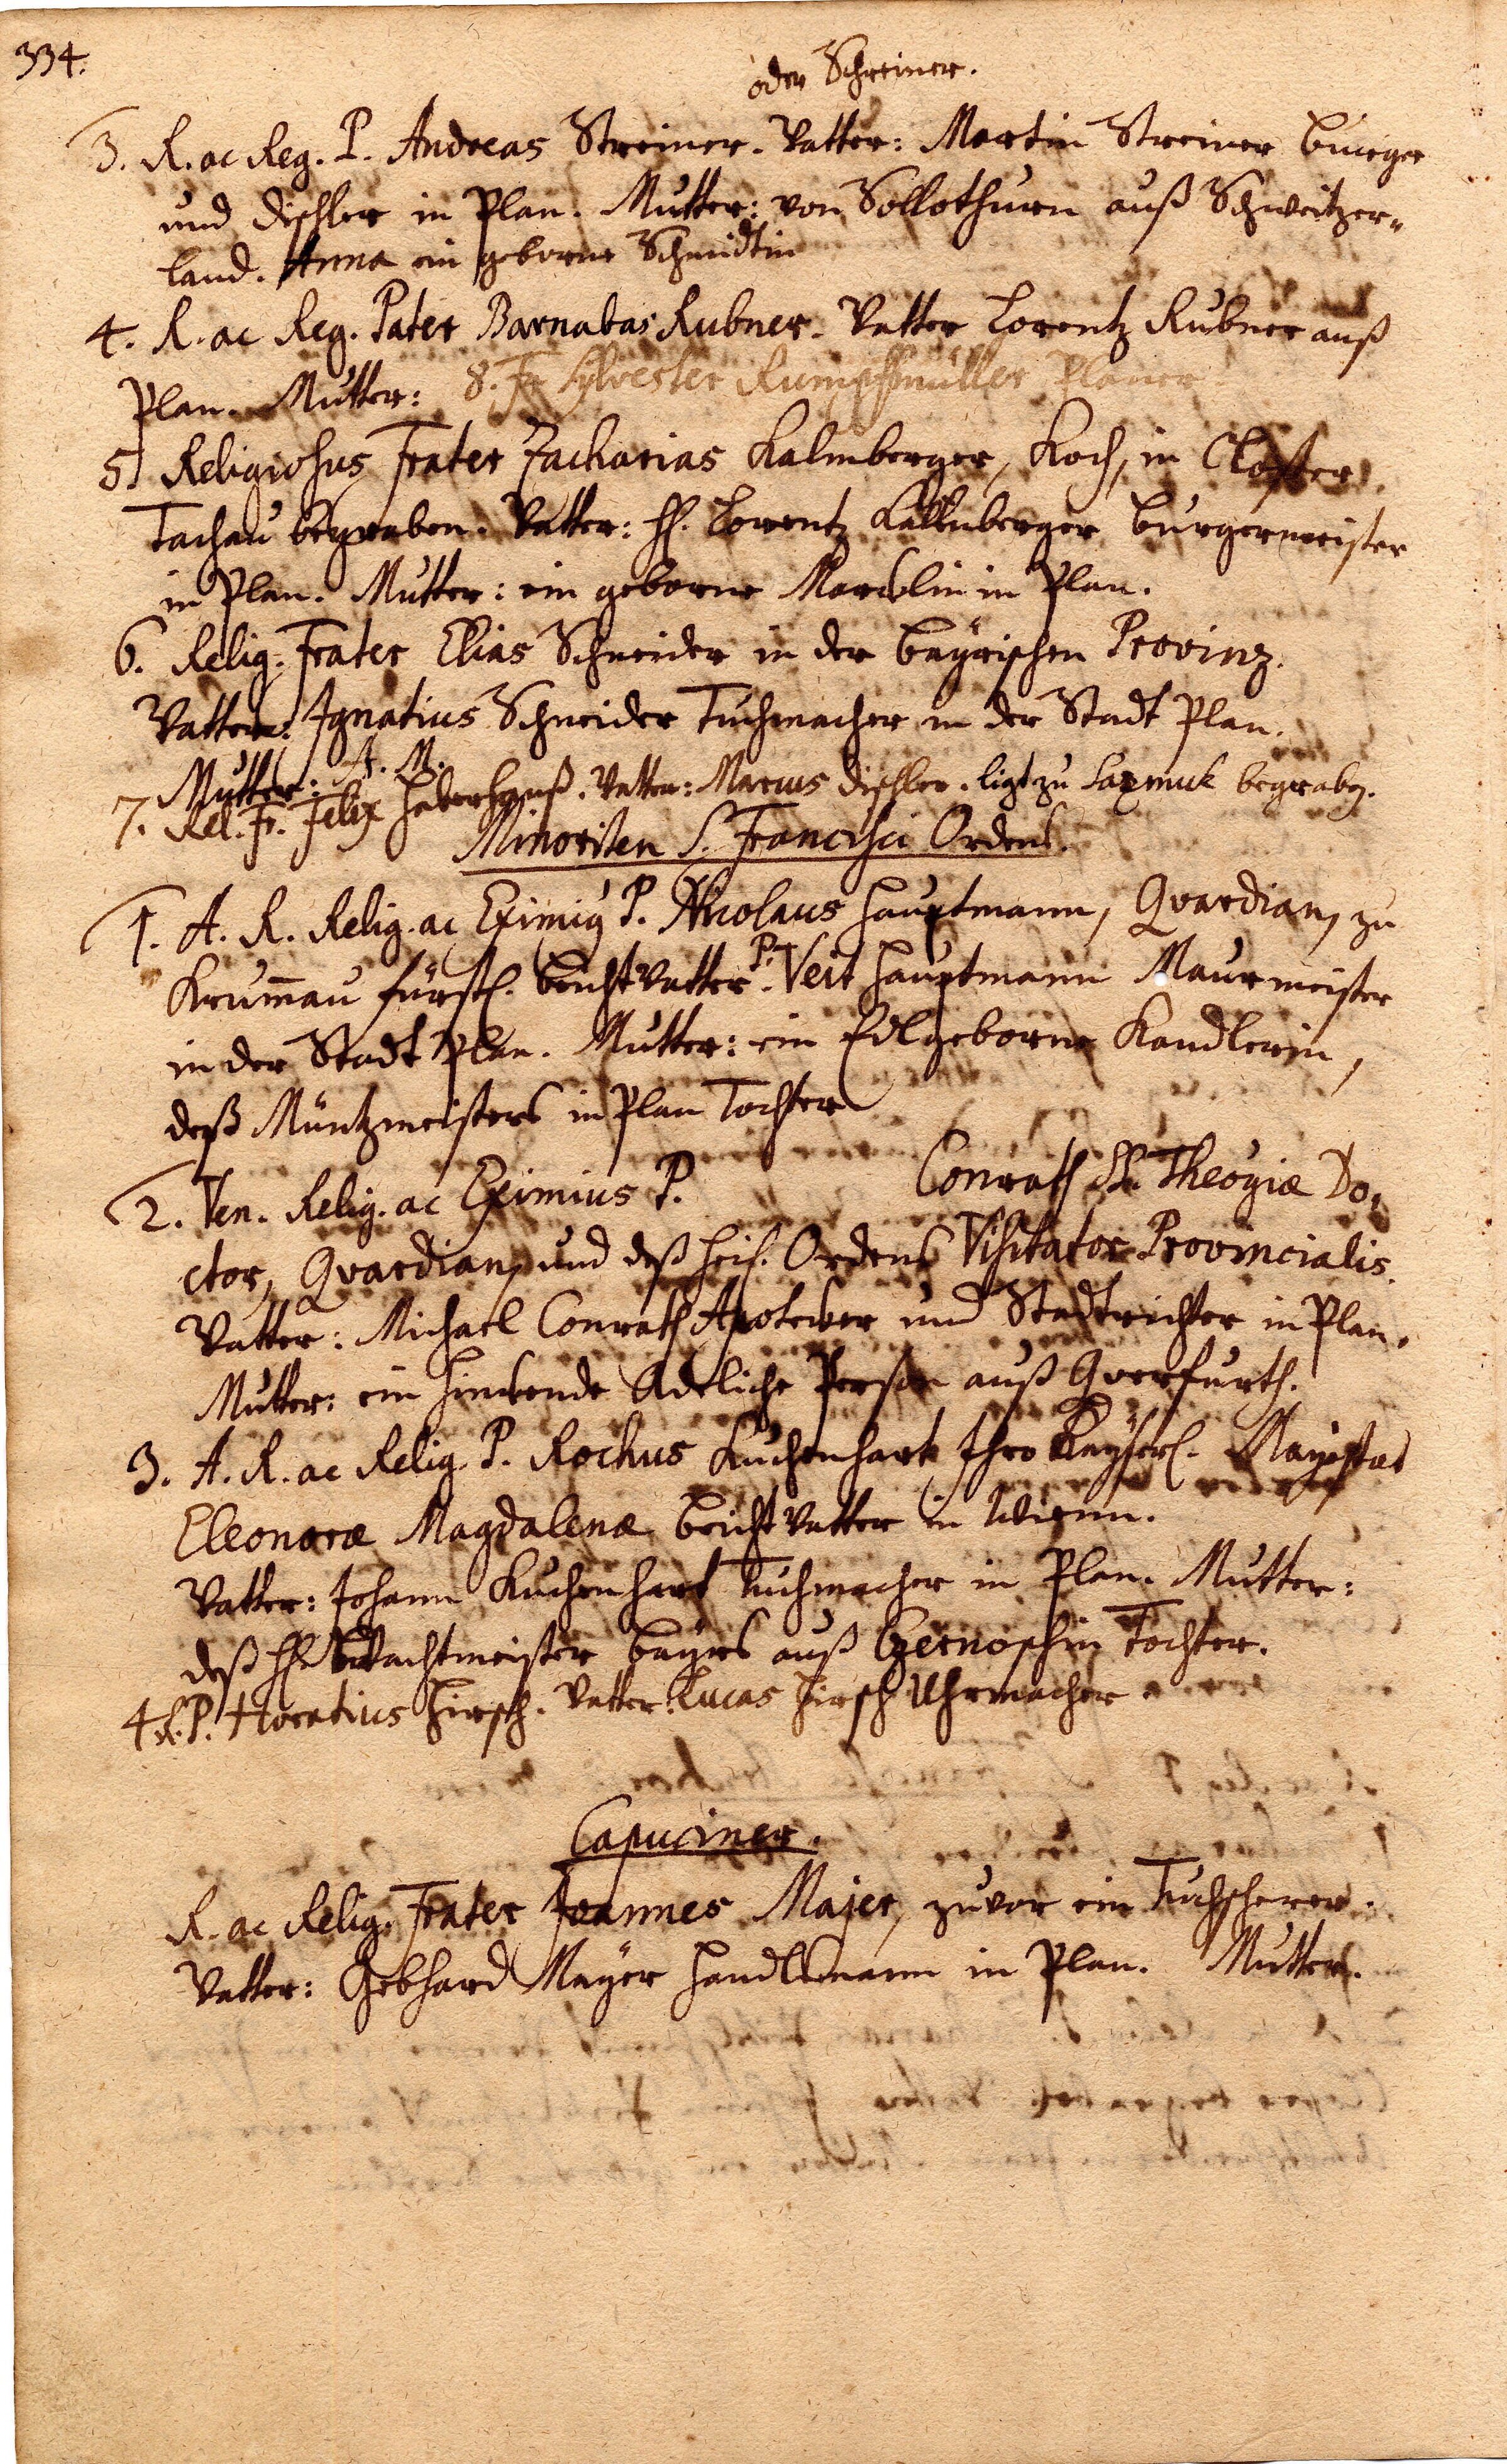 334.
oder Schreiner.
3. R. ac Reg. P. Andreas Streiner. Vatter: Martin Streiner burger
und dischler in Plan. Mutter: von Sollothurn auß Schweitzer-
land. Anna ein geborne Schmidtin
4. R. ac Reg. Pater Barnabas Rubner. Vatter Lorentz Rubner auß
Plan. Mutter: 8. Fr. Sylvester Rumpfmüller Planer
5. Religiosus Frater Zacharias Kalmberger, Koch, in Closter
Tachau begraben. Vatter: H. Lorentz Kallmberger burgermeister
in Plan. Mutter: ein geborne in Plan.
6. Relig. Frater Elias Schneider in der bayrischen Provinz.
Vatter: Ignatius Schneider Tuchmacher in der Stadt Plan.
Mutter: A. M.
7. Rel. Fr. Felix Haberhanß. Vatter: Marcus dischler. ligt zu begraben.
Minoriten S. Francisci Ordens.
1. A. R. Relig. ac Eximiꝰ P. Nicolaus Hauptmann, Quardian, zu
Krum̄au fürstl. beichtvatter. Pr. Veit Hauptmann Maurmeister
in der Stadt Plan. Mutter: ein Edlgeborne Kandlerin,
deß Müntzmeisters in Plan Tochter
2. Ven. Relig. ac Eximius P. Conrath SS. Theogiæ Do-
ctor, Quardian, und deß heil. Ordens Visitator Provincialis.
Vatter: Michael Conrath Apotecker und Stadtrichter in Plan.
Mutter: ein hinckende Adeliche Person auß Querfurth.
3. A. R. ac Relig. P. Rochus Kuchenhart Ihro Kayserl. Mayestæt
Eleonoræ Magdalenæ beichtvatter in Wienn.
Vatter: Johann Kuchenhart Tuchmacher in Plan. Mutter:
deß H. Wachtmeister bayrs auß Czernoschin Tochter.
4. R. P. Horatius Hirsch. Vatter: Lucas Hirsch Uhrmacher
Capuciner.
R. ac Relig. Frater Joannes Majer, zuvor ein Tuchscherer.
Vatter: Gebhard Mayer Handlsmann in Plan. Mutter.